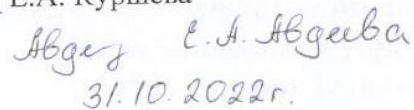 Е.А. Куршева
Авдеу Е.А. Авдеева
31.10.2022г.